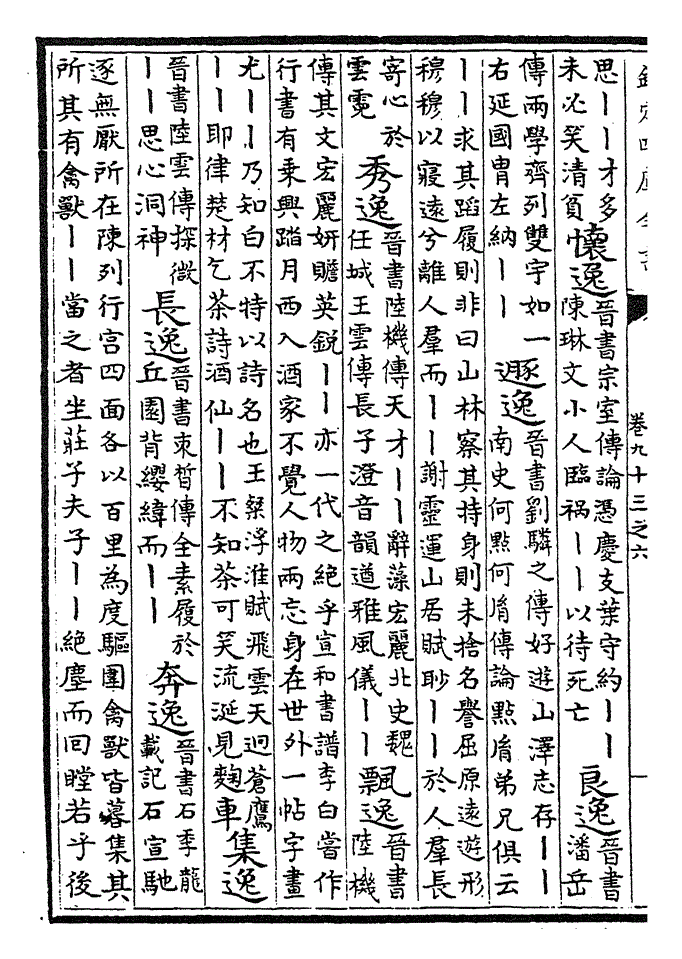 欽定四庫全書
卷九十三之六
思丨丨才多
未必笑清貧
懷逸
晉書宗室傳論憑慶支葉守約丨丨
陳琳文小人臨禍丨丨以待死亡
良逸
晉書
潘岳
傳兩學齊列雙宇如一
右延國胄左納丨丨
遯逸
晉書劉驎之傳好遊山澤志存丨丨
南史何點何胤傳論點胤弟兄俱云
丨丨求其蹈履則非曰山林察其持身則未捨名譽屈原遠遊形
穆穆以寖遠兮離人羣而丨丨謝靈運山居賦眇丨丨於人羣長
寄心於
雲霓
秀逸
晉書陸機傳天才丨丨辭藻宏麗北史魏
任城王雲傳長子澄音韻遒雅風儀丨丨
飄逸
晉書
陸機
傳其文宏麗妍贍英銳丨丨亦一代之絕乎宣和書譜李白嘗作
行書有乘興踏月西入酒家不覺人物兩忘身在世外一帖字畫
尤丨丨乃知白不特以詩名也王粲浮淮賦飛雲天迥蒼鷹
丨丨耶律楚材乞茶詩酒仙丨丨不知茶可笑流涎見麴車
集逸
晉書陸雲傳探微
丨丨思心洞神
長逸
晉書束晳傳全素履於
丘園背纓緯而丨丨
奔逸
晉書石季龍
載記石宣馳
逐無厭所在陳列行宮四面各以百里為度驅圍禽獸皆暮集其
所其有禽獸丨丨當之者坐莊子夫子丨丨絕塵而回瞠若乎後